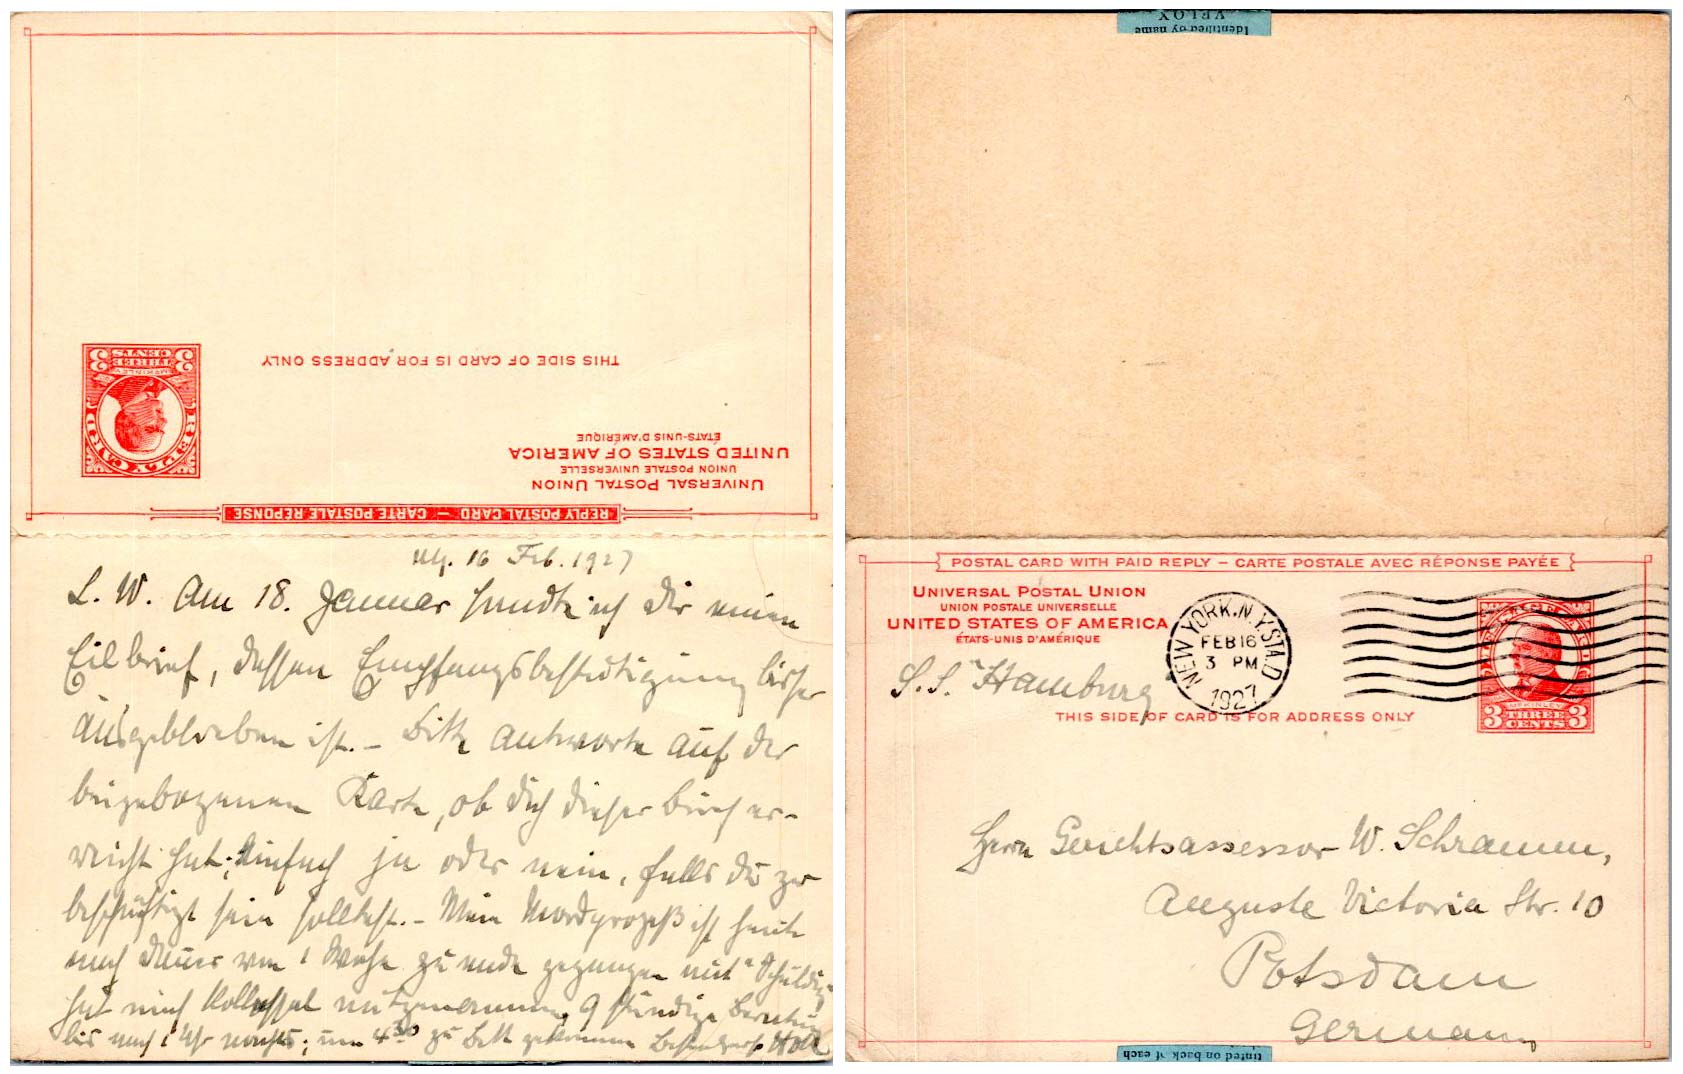 THIS SIDE OF CARD IS FOR ADDRESS ONLY
McKINLEY
THREE CENTS
3 3
REPLY CARD
ÉTATS-UNIS D'AMÉRIQUE
UNITED STATES OF AMERICA
UNION POSTALE UNIVERSELLE
UNIVERSAL POSTAL UNION
REPLY POSTAL CARD — CARTE POSTALE RÉPONSE
16 Feb. 1927
L. W. Am 18. Januar sandte ich Dir einen
Eilbrief, dessen Empfangsbestätigung bisher
ausgeblieben ist. – Bitte antworte auf der
beigebogenen Karte, ob Dich dieser Brief er-
reicht hat; einfach ja oder nein, falls Du zu
beschäftigt sein solltest. – Mein Mordprozeß ist heute
nach Dauer von 1 Woche zu ende gegangen mit "Schuldig"
hat mich kollossal mitgenommen, 9 stündige Beratung
bis nach 1 Uhr nachts; um 4³⁰ zu Bett gekommen
Identified by name
VELOX
POSTAL CARD WITH PAID REPLY – CARTE POSTALE AVEC RÉPONSE PAYÉE
UNIVERSAL POSTAL UNION
UNION POSTALE UNIVERSELLE
UNITED STATES OF AMERICA
ÉTATS-UNIS D'AMÉRIQUE
NEW YORK, N.Y. STA. D
FEB 16
3 PM
1927
McKINLEY
3 THREE CENTS 3
S.S. "Hamburg"
THIS SIDE OF CARD IS FOR ADDRESS ONLY
Herrn Gerichtsassessor W. Schramm,
Auguste Victoria Str. 10
Potsdam
Germany
tinted on back of each